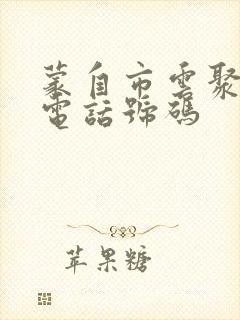 蒙自市雲聚
電話號碼
苹果糖